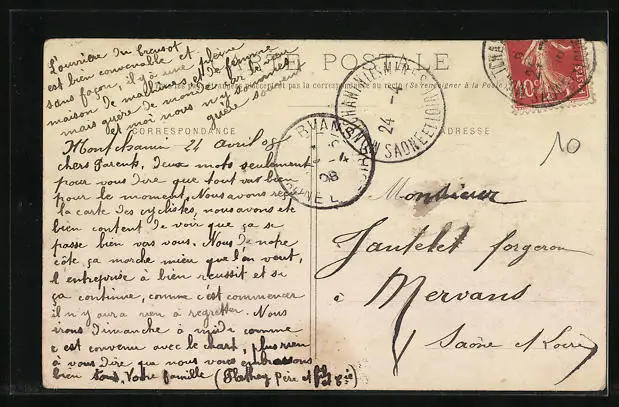 L'ouvrière du Creusot
est bien convenable et pleine
sans façon, il y a une
maison de malheur et de femme
mais guère de monde
et moi nous n'y sommes
guère souvent
CARTE POSTALE
CORRESPONDANCE
ADRESSE
Montchanin 24 Avril 08
chers Parents, Deux mots seulement
pour vous dire que tout vat bien
pour le moment, Nous avons reçu
la carte des cyclistes, nous avons ete
bien content de voir que ça se
passe bien vas vous. Nous de notre
côte ça marche mieu que l'on veut,
l entreprise à bien reussit et si
ça continue, comme c'est commencer
il n'y aura rien à regretter. Nous
irons Dimanche à midi comme
c est convenu avec le chart, plus rien
à vous Dire que nous vous embrassons
bien tous. Votre famille (Flathey Père et fils et Cie)
MONTCHANIN-LES-MINES
24 -4
SAONE ET LOIRE
MERVANS
08
10
Monsieur
Jautelet forgeron
à Mervans
Saône et Loire
10c
POSTES